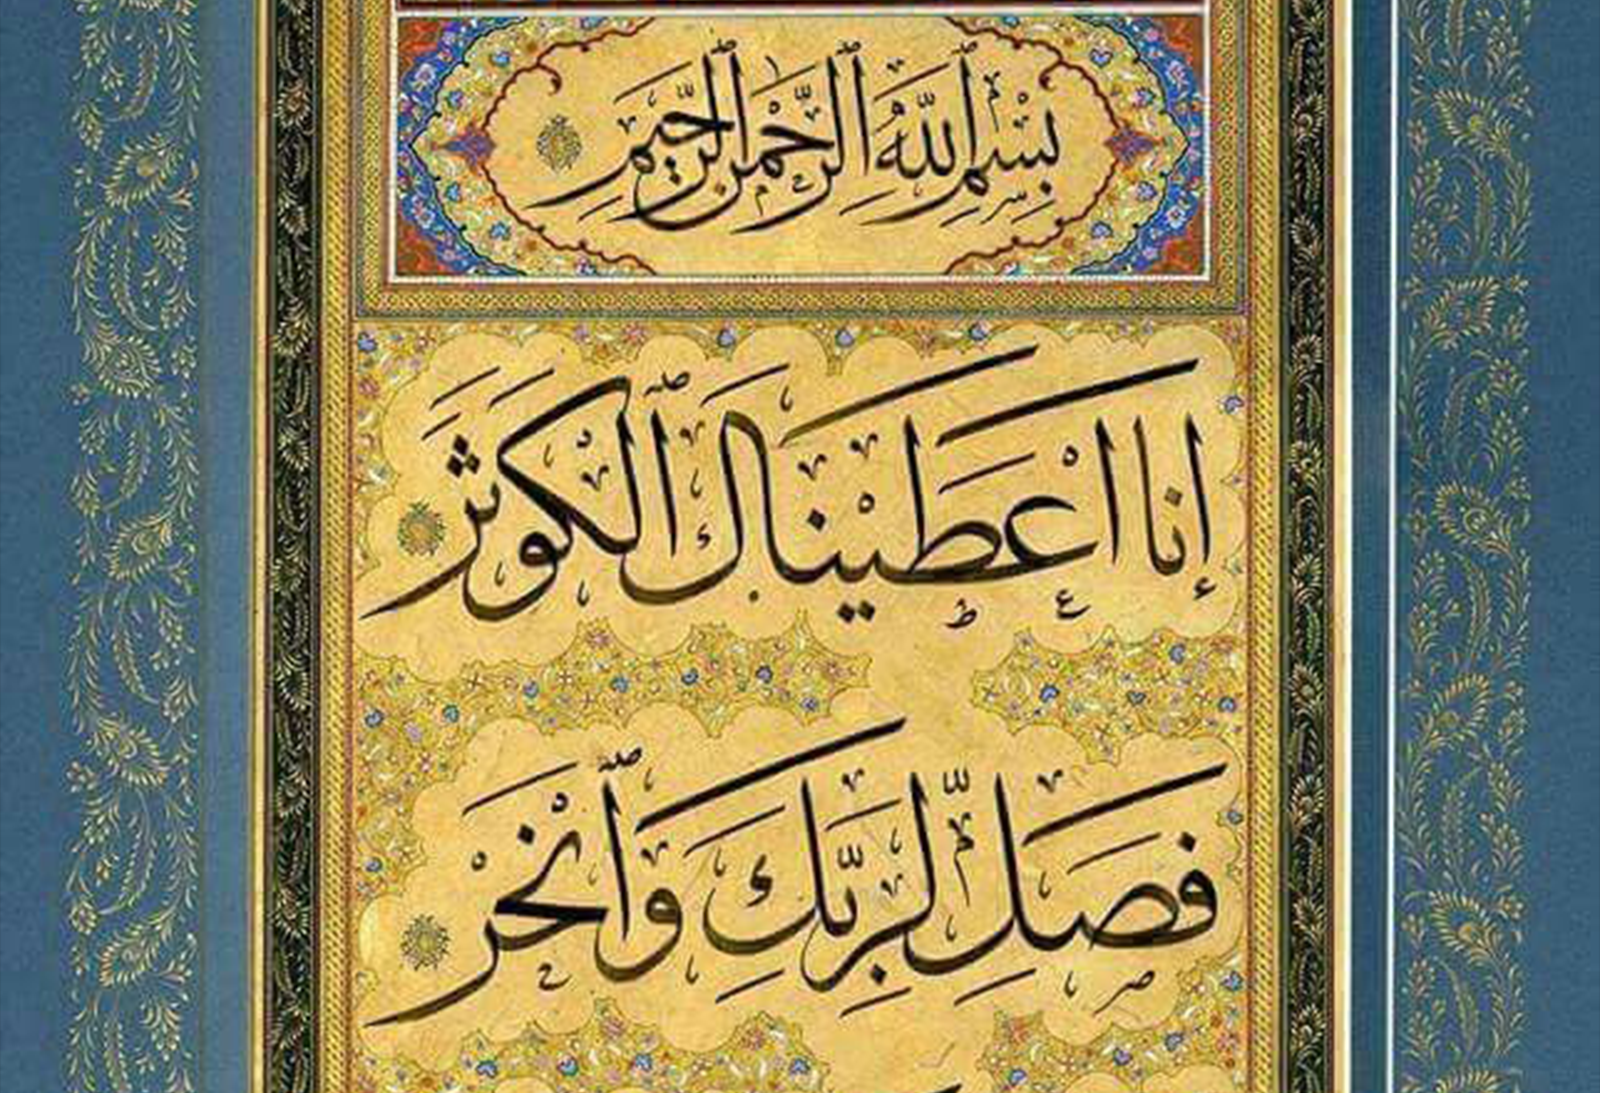 بِسْمِ ٱللَّهِ ٱلرَّحْمَٰنِ ٱلرَّحِيمِ
إِنَّا أَعْطَيْنَاكَ ٱلْكَوْثَرَ
فَصَلِّ لِرَبِّكَ وَٱنْحَرْ